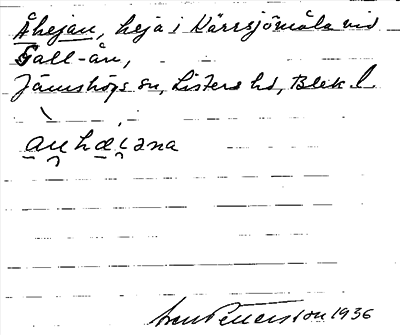 Åhejan, heja i Kärrsjömåla vid
Gall-ån,
Jämshögs sn, Listers hd, Blek l.
Pettersson 1936